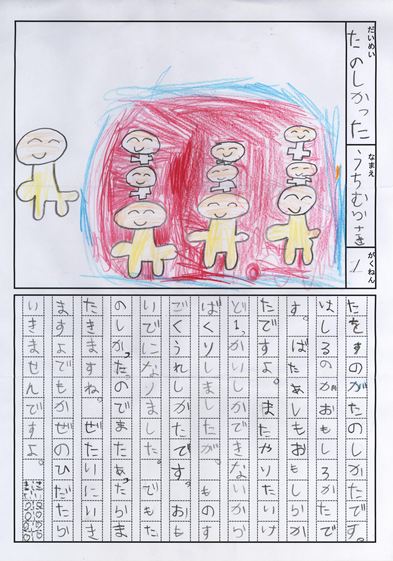 だいめい
たのしかった
なまえ
うちむらさき
がくねん
1
たをすのがたのしかたです。
はしるのがおもしろかたで
す。ばたあしもおもしろか
たですよ。またやりたいけ
ど1っかいしかできないから
ばくりしましたが。ものす
ごくうれしがたです。おも
いでになりました。でもた
のしかったのでまたあったらま
たきますね。ぜたいにいき
ますよでもかぜのひだたら
いきませんですよ。